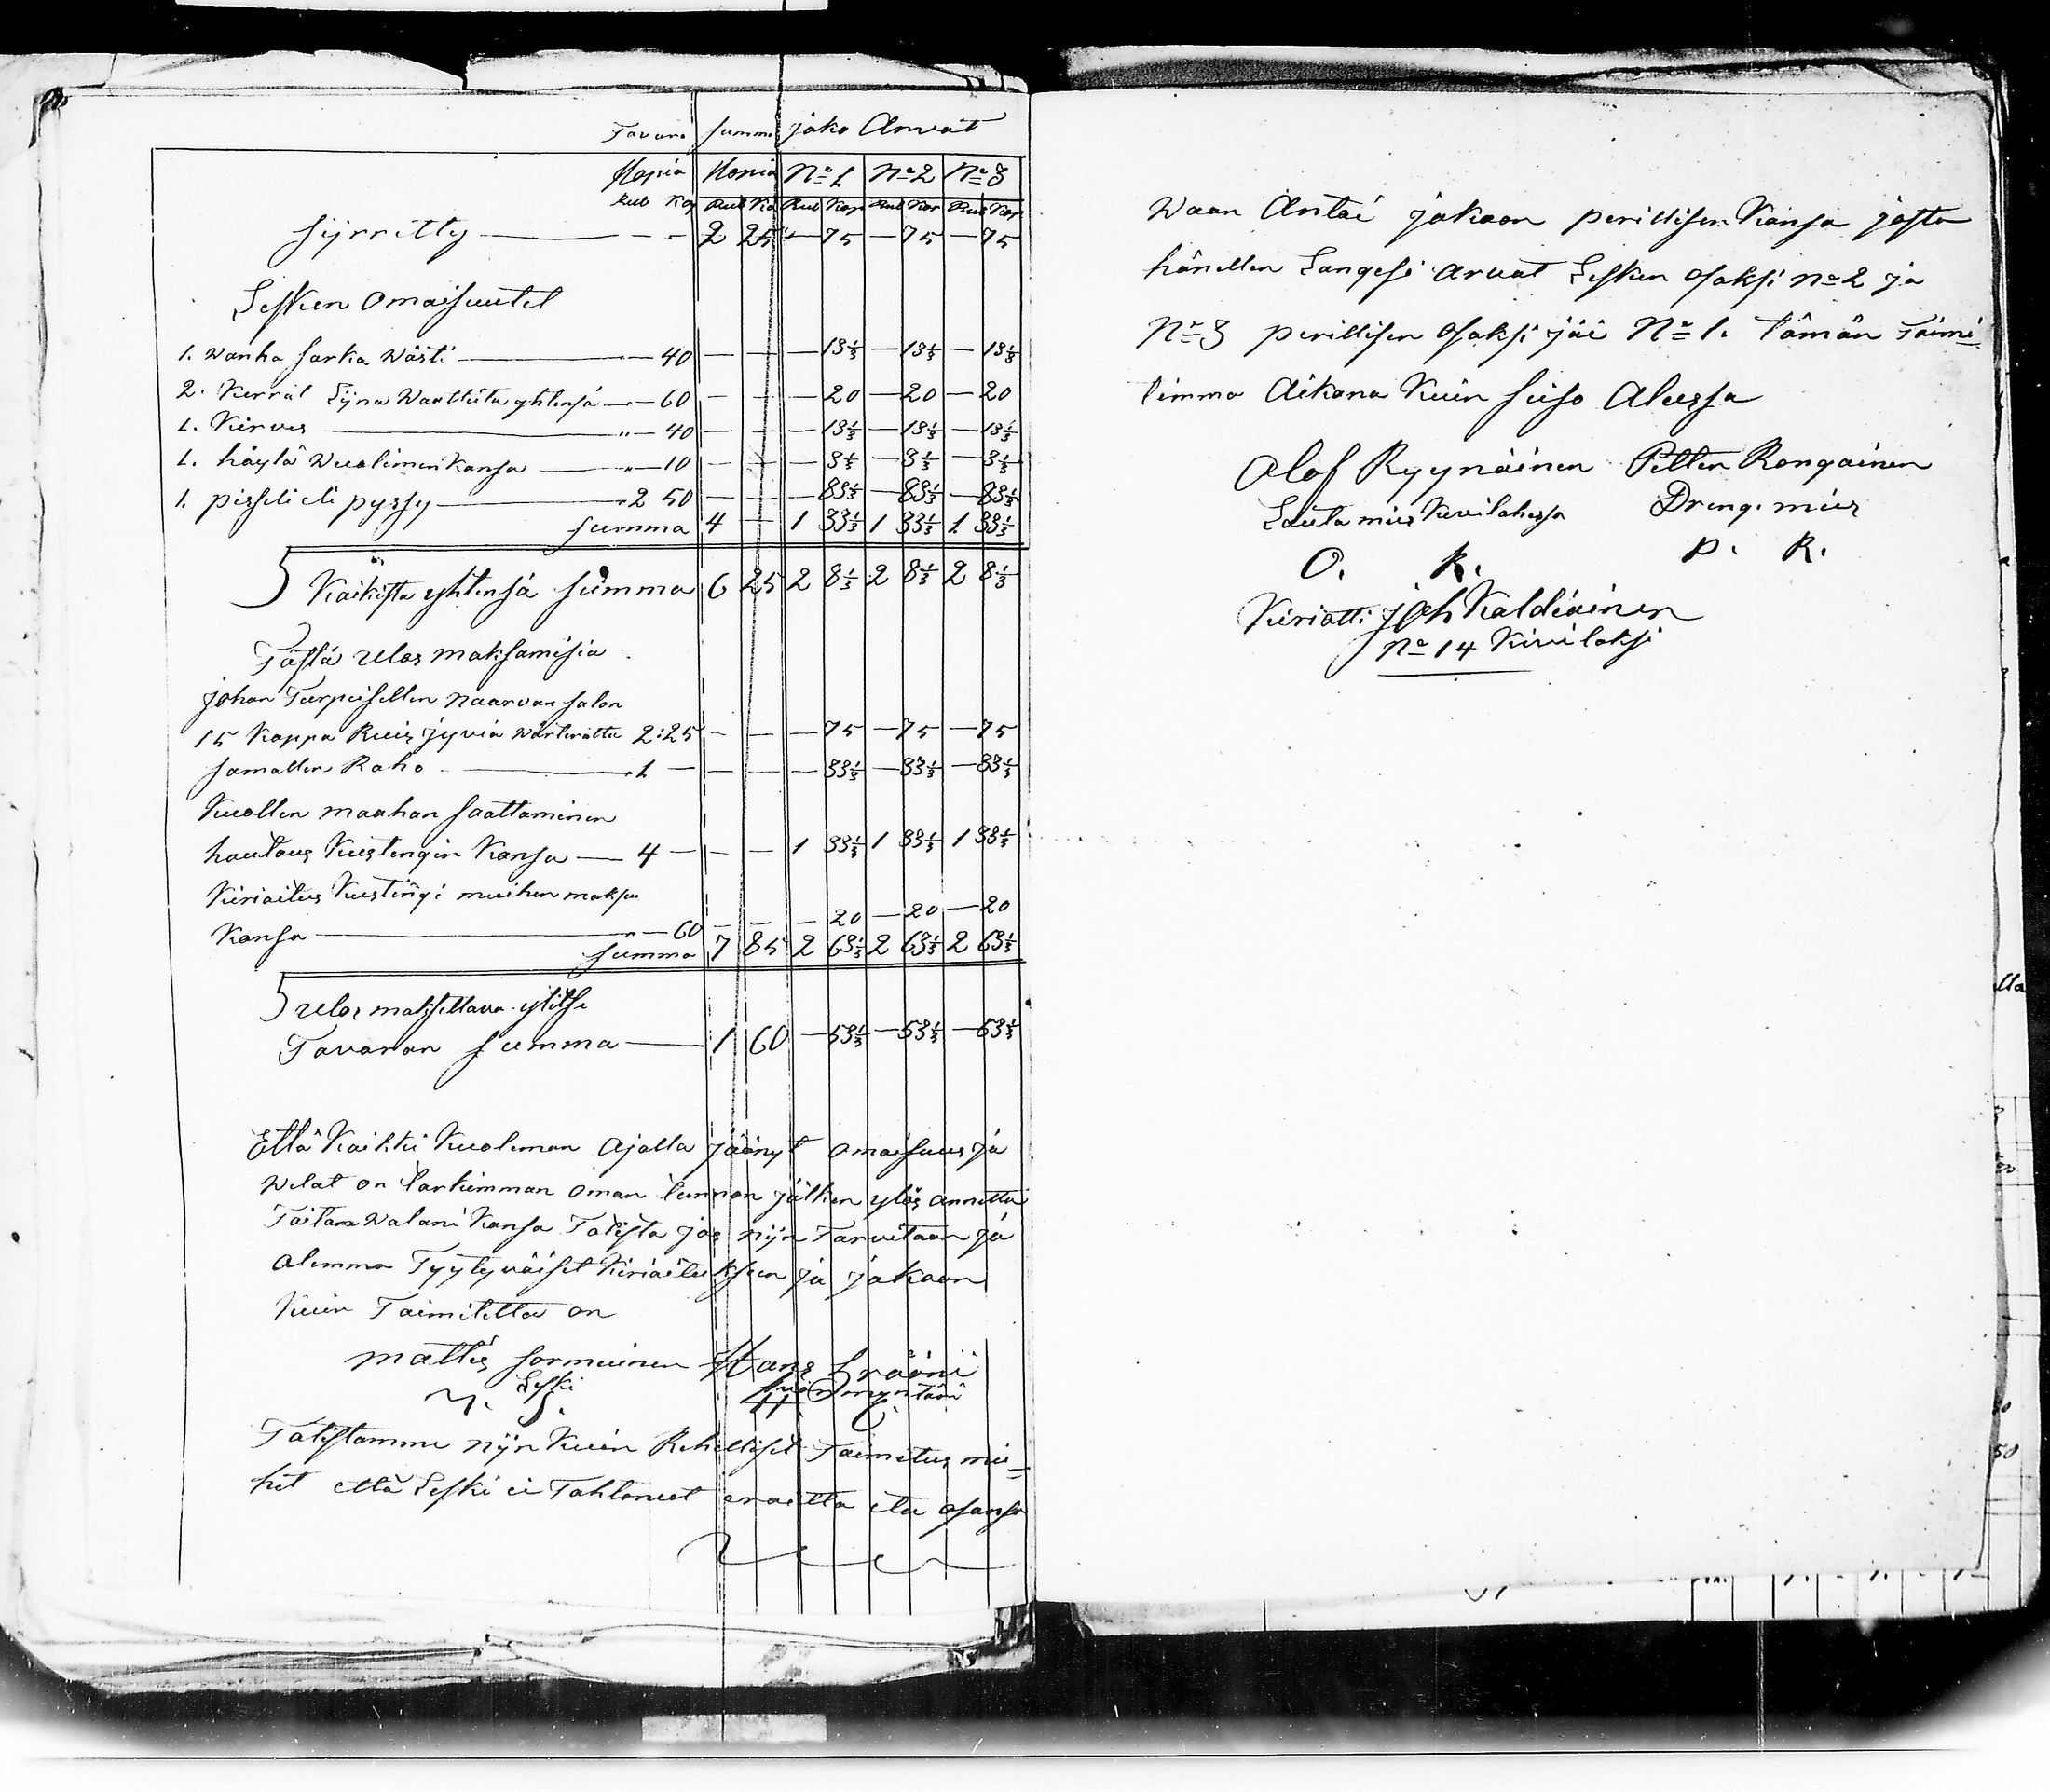 Tavara Summa jako Arwat
Hopia Hopia No 1 No 2 No 3
Rub Kop Rub Ko Rub Kop Rub Kop Rub Kop
Sijrretty — — — 2 25 — 75 — 75 — 75
Lesken omaisuutet
1. wanha sarka wästi — — 40 — — — 13 1/3 — 13 1/3 — 13 1/3
2. Kerrat Lijna waatteita yhtensä — — 60 — — — 20 — 20 — 20
1. Kirves — " — 40 — — — 13 1/3 — 13 1/3 — 13 1/3
1. höylä wuolimen Kansa — " — 10 — — — 3 1/3 — 3 1/3 — 3 1/3
1. pisseli eli pyssy — 2 50 — — — 83 1/3 — 83 1/3 — 83 1/3
Summa 4 — 1 33 1/3 1 33 1/3 1 33 1/3
Kaikista yhtensä summa 6 25 2 8 1/3 2 8 1/3 2 8 1/3
Tästä ulos maksamisia
johan Turpeisellen naarvan salon
15 Kappa Ruis jyviä wärterättu 2:25 — — — 75 — 75 — 75
samallen Raho — 1 — — — — 33 1/3 — 33 1/3 — 33 1/3
Kuollen maahan saattaminen
hautaus Kustengin Kansa — 4 — — — 1 33 1/3 1 33 1/3 1 33 1/3
Kiriaitus Kustingi muihen maksu
Kansa — " — 60 — — — 20 — 20 — 20
Summa 7 85 2 63 1/3 2 63 1/3 2 63 1/3
ulos maksettava ylitse
Tavaran Summa — 1 60 — 53 1/3 — 53 1/3 — 53 1/3
Että Kaikki Kuoleman ajalla jäänyt omaisuus ja
welat on tarkimman oman tunnon jälken ylös annettu
Taitan walani Kansa Totista jos nijn Tarvitaan ja
olemma Tyytyväiset Kiriaituksen ja jakoon
Kuin Toimitettu on
mattis sormuinen Hans
Leski
Totistamme nijn Kuin Rehelliset Toimitus mie=
het että Leski ei Tahtonut eroitta etu osansa
waan Antai jakoon perillisen Kansa josta
hänellen Langesi arvat Lesken osaksi No 2 ja
No 3 perillisen osaksi jäi No 1. tämän Toimi=
timma Aikana Kuin seiso Alussa
Olof Ryynäinen Petter Rongainen
Lauta mies Kuvilahessa Dreng. mies
O. R. P. R.
Kiriatti joh Kaldiainen
No 14 Kivilaksi